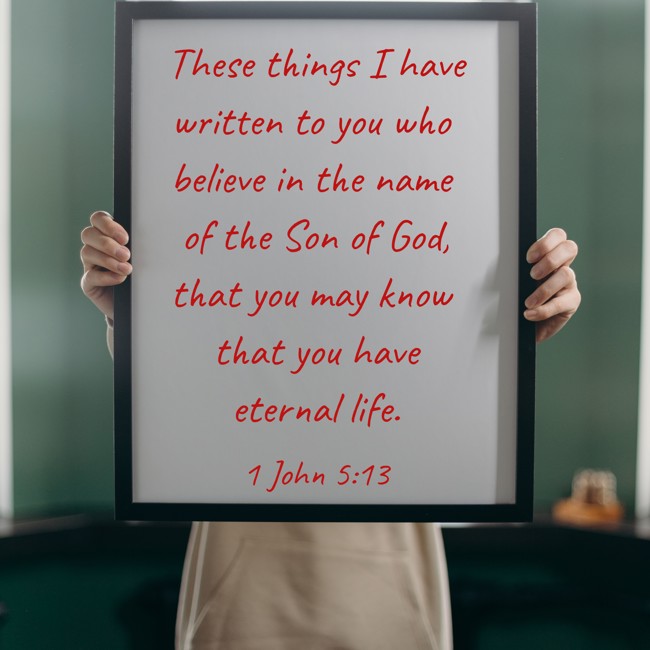 These things I have
written to you who
believe in the name
of the Son of God,
that you may know
that you have
eternal life.
1 John 5:13